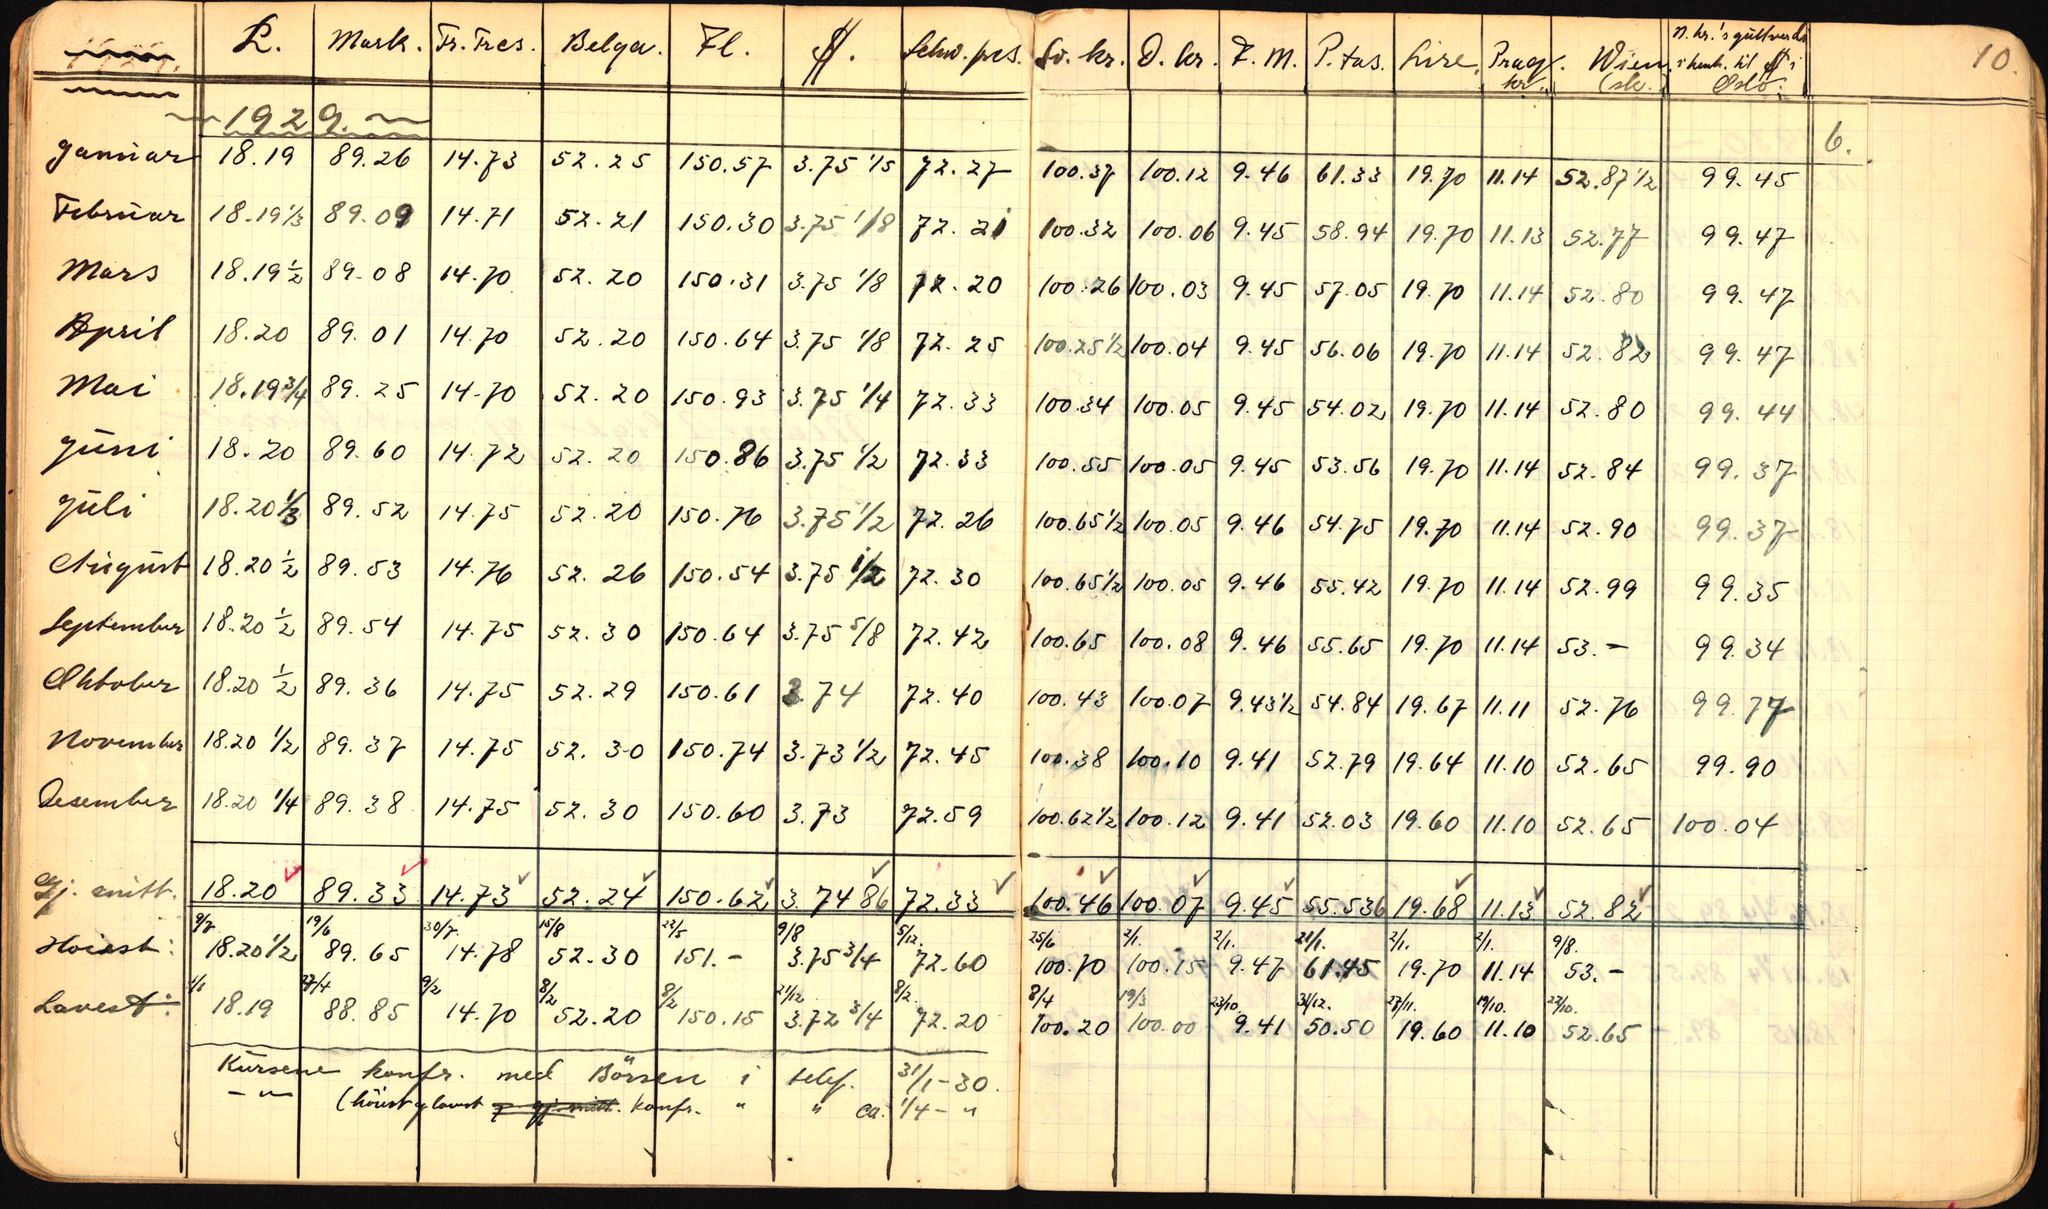 £. Mark. Fr. Frcs. Belga. Fl. $. Schw. frcs. Sv. kr. D. kr. F. M. P.tas. Lire. Prag kr. Wien (sk. N. kr.'s gullverdi i henh. til $ i Oslo. 10.
1929. 6.
Januar 18.19 89.26 14.73 52.25 150.57 3.75 1/5 72.27 100.37 100.12 9.46 61.33 19.70 11.14 52.87 1/2 99.45
Februar 18.19 1/3 89.09 14.71 52.21 150.30 3.75 1/8 72.21 100.32 100.06 9.45 58.94 19.70 11.13 52.77 99.47
Mars 18.19 1/2 89.08 14.70 52.20 150.31 3.75 1/8 72.20 100.26 100.03 9.45 57.05 19.70 11.14 52.80 99.47
April 18.20 89.01 14.70 52.20 150.64 3.75 1/8 72.25 100.25 1/2 100.04 9.45 56.06 19.70 11.14 52.82 99.47
Mai 18.19 3/4 89.25 14.70 52.20 150.93 3.75 1/4 72.33 100.34 100.05 9.45 54.02 19.70 11.14 52.80 99.44
Juni 18.20 89.60 14.72 52.20 150.86 3.75 1/2 72.33 100.55 100.05 9.45 53.56 19.70 11.14 52.84 99.37
Juli 18.20 1/3 89.52 14.75 52.20 150.76 3.75 1/2 72.26 100.65 1/2 100.05 9.46 54.75 19.70 11.14 52.90 99.37
August 18.20 1/2 89.53 14.76 52.26 150.54 3.75 1/2 72.30 100.65 1/2 100.05 9.46 55.42 19.70 11.14 52.99 99.35
September 18.20 1/2 89.54 14.75 52.30 150.64 3.75 5/8 72.42 100.65 100.08 9.46 55.65 19.70 11.14 53.- 99.34
Oktober 18.20 1/2 89.36 14.75 52.29 150.61 3.74 72.40 100.43 100.07 9.43 1/2 54.84 19.67 11.11 52.76 99.77
November 18.20 1/2 89.37 14.75 52.30 150.74 3.73 1/2 72.45 100.38 100.10 9.41 52.79 19.64 11.10 52.65 99.90
Desember 18.20 1/4 89.38 14.75 52.30 150.60 3.73 72.59 100.62 1/2 100.12 9.41 52.03 19.60 11.10 52.65 100.04
Gj. snitt. 18.20 89.33 14.73 52.24 150.62 3.7486 72.33 100.46 100.07 9.45 55.536 19.68 11.13 52.82
9/7 19/6 30/7. 15/8 22/5 9/8 5/12. 25/6 2/1. 2/1. 21/1. 2/1. 2/1. 9/8.
Høiest: 18.20 1/2 89.65 14.78 52.30 151.- 3.75 3/4 72.60 100.70 100.15 9.47 61.45 19.70 11.14 53.-
1/1 27/4 9/2 8/2 8/2 21/12. 8/2. 8/4 19/3 23/10. 31/12. 27/11. 19/10. 27/10.
Lavest: 18.19 88.85 14.70 52.20 150.15 3.72 3/4 72.20 100.20 100.00 9.41 50.50 19.60 11.10 52.65
Kursene konfr. med Börsen i telef. 31/1-30.
-"- (höiest og lavest og gj. snitt. konfr. " " ca. 1/4 - "